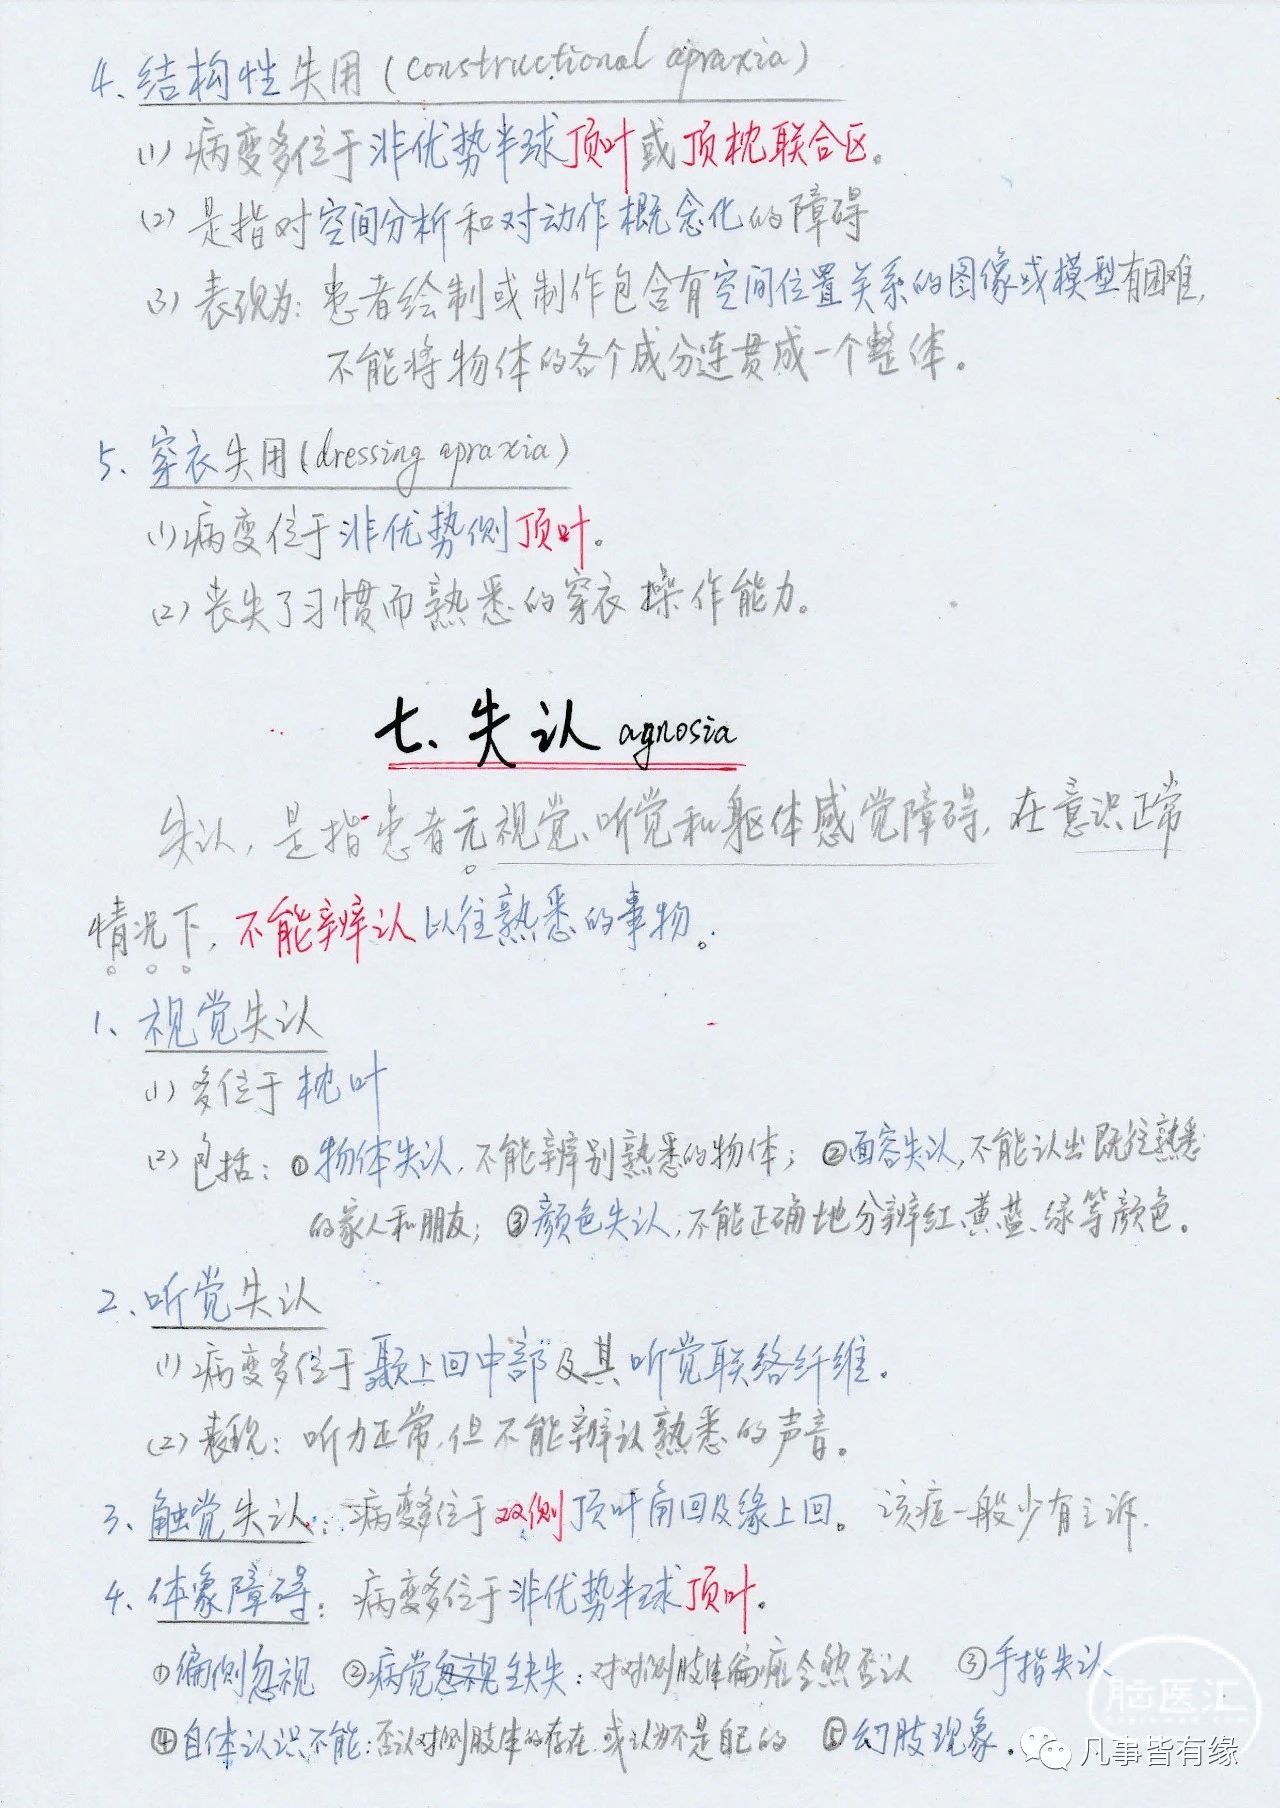 4、结构性失用(constructional apraxia)
(1) 病变多位于非优势半球顶叶或顶枕联合区。
(2) 是指对空间分析和对动作概念化的障碍
(3) 表现为：患者绘制或制作包含有空间位置关系的图像或模型有困难,
不能将物体的各个成分连贯成一个整体。
5、穿衣失用(dressing apraxia)
(1) 病变位于非优势侧顶叶。
(2) 丧失了习惯而熟悉的穿衣操作能力。
七、失认 agnosia
失认，是指患者无视觉、听觉和躯体感觉障碍，在意识正常
情况下，不能辨认以往熟悉的事物。
1、视觉失认
(1) 多位于枕叶
(2) 包括：①物体失认，不能辨别熟悉的物体；②面容失认，不能认出既往熟悉
的家人和朋友；③颜色失认，不能正确地分辨红、黄、蓝、绿等颜色。
2、听觉失认
(1) 病变多位于颞上回中部及其听觉联络纤维。
(2) 表现：听力正常，但不能辨认熟悉的声音。
3、触觉失认：病变多位于双侧顶叶角回及缘上回。该症一般少有主诉.
4、体象障碍：病变多位于非优势半球顶叶。
①偏侧忽视 ②病觉缺失：对对侧肢体偏瘫全然否认 ③手指失认
④自体认识不能：否认对侧肢体的存在，或认为不是自己的 ⑤幻肢现象.
脑医汇
凡事皆有缘